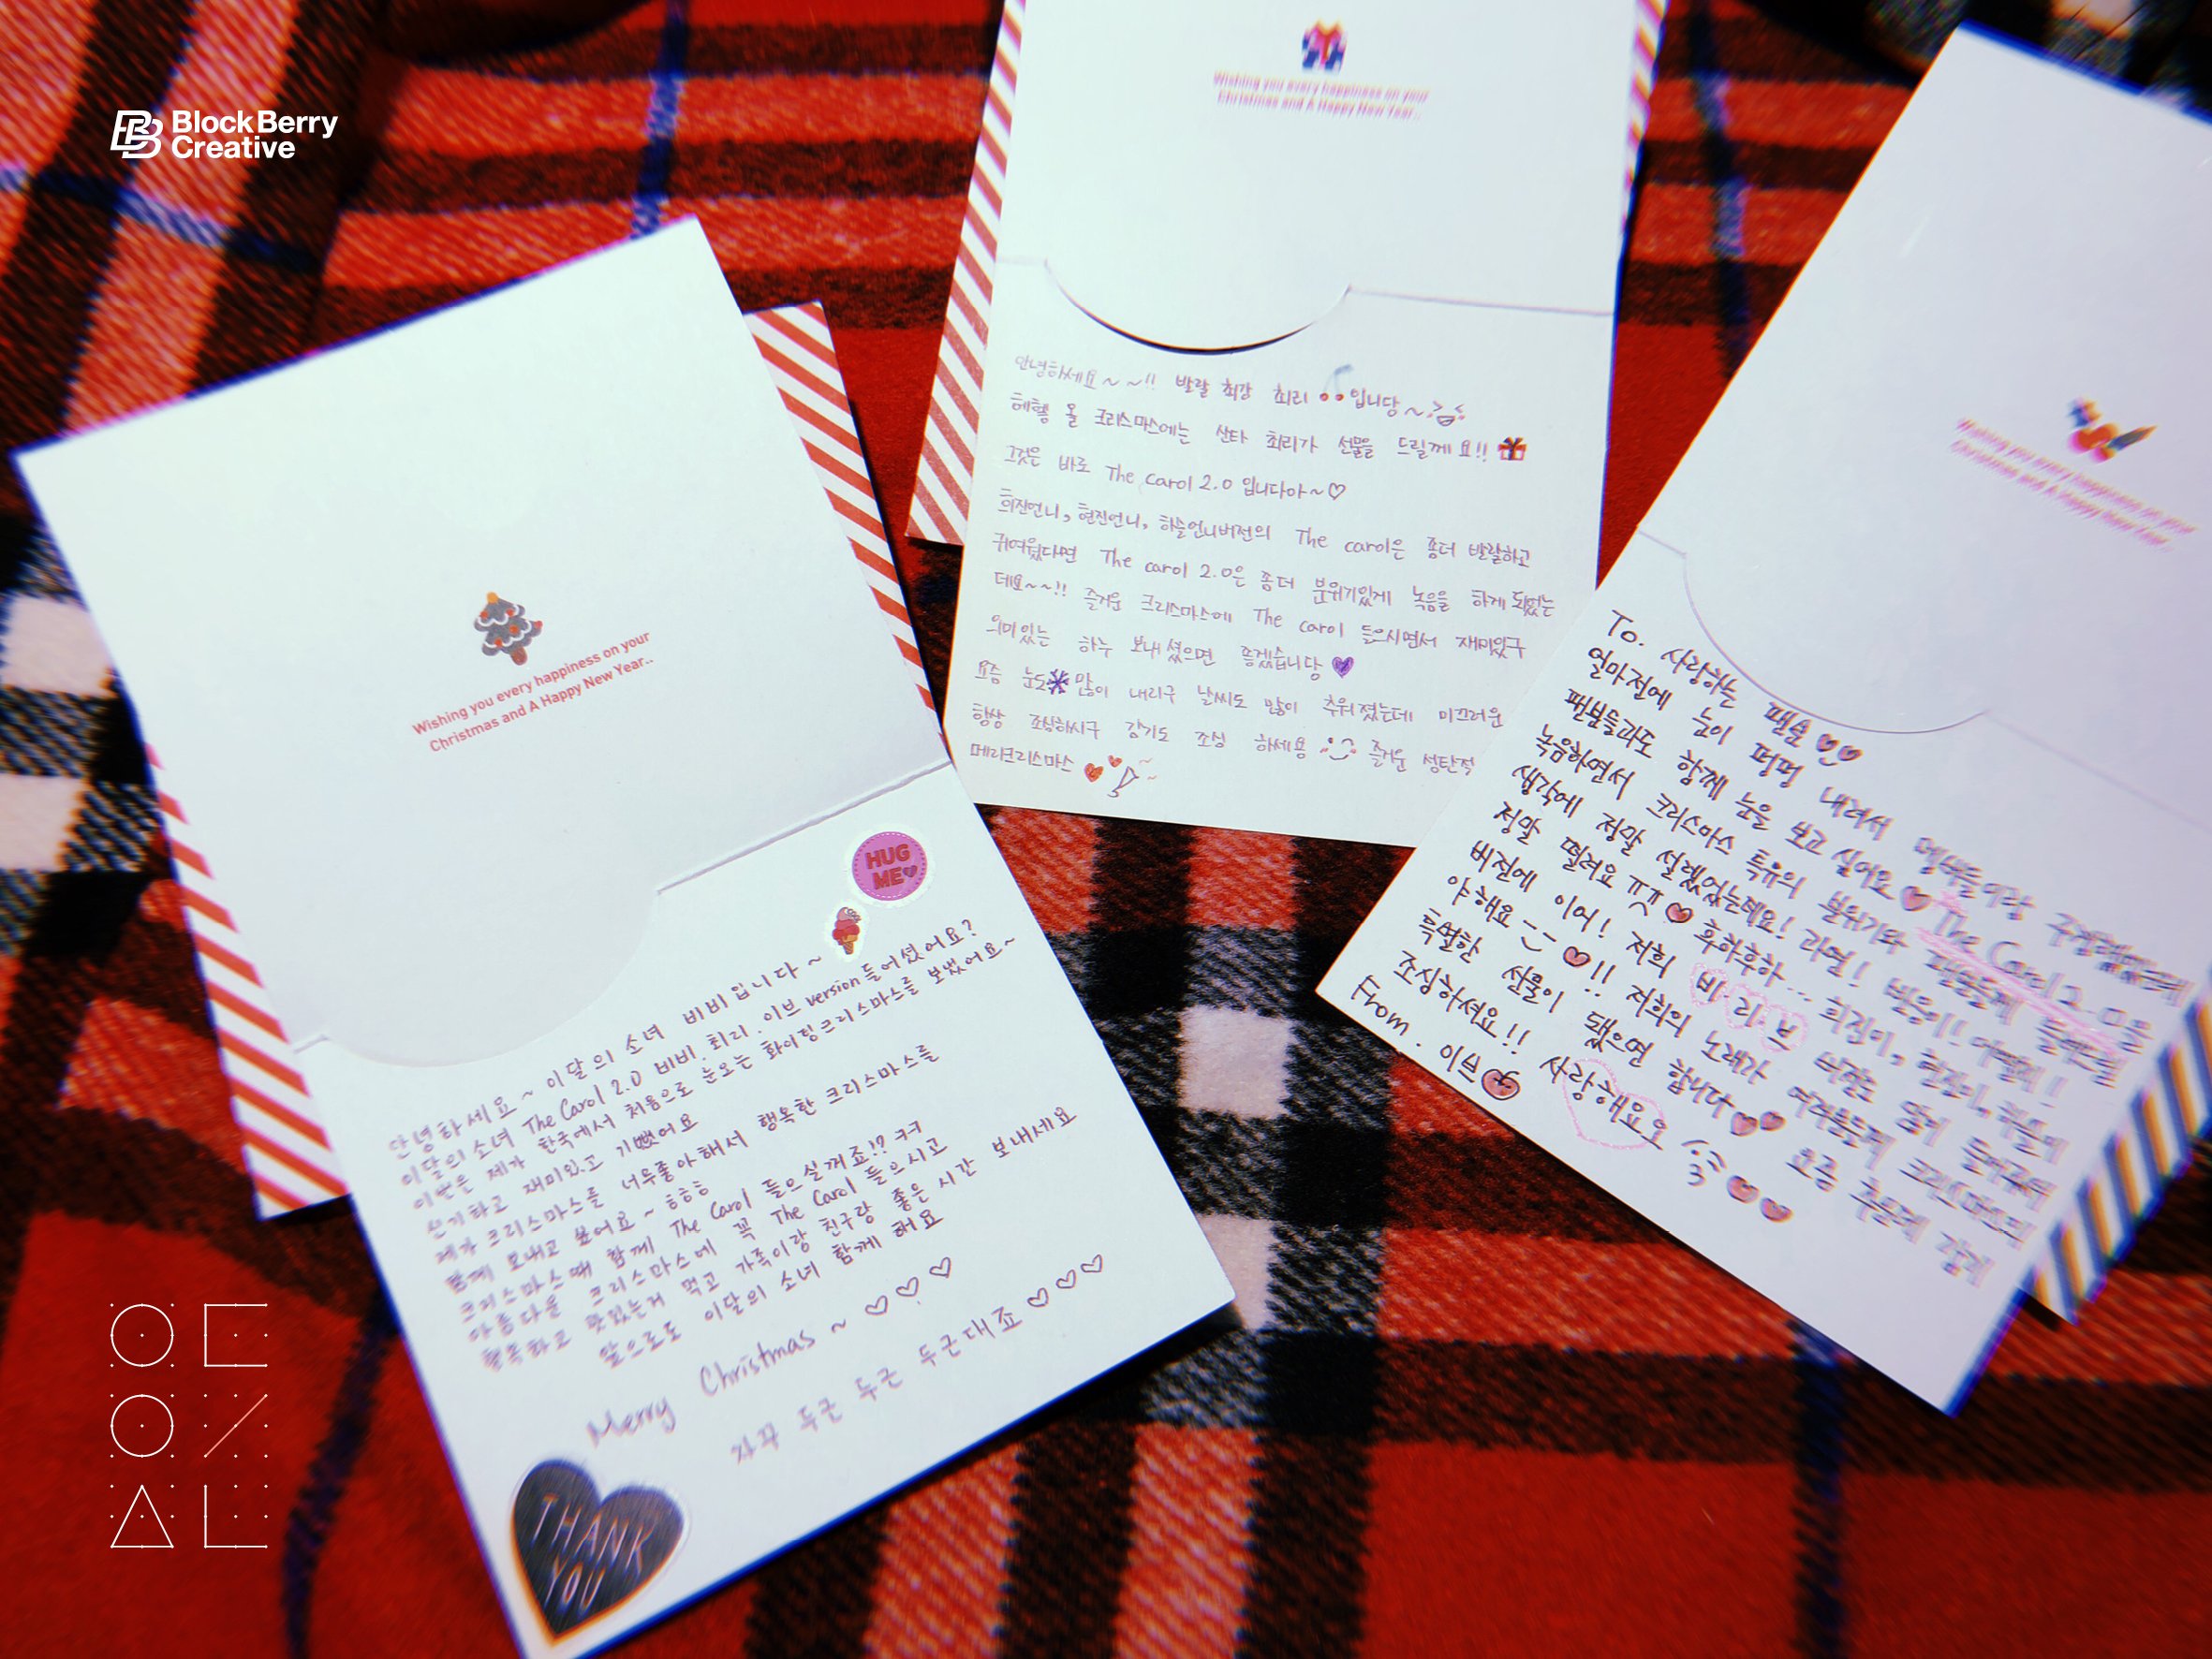 BlockBerry
Creative
Wishing you every happiness on your
Christmas and A Happy New Year..
HUG
ME
안녕하세요~ 이달의 소녀 비비입니다~
이달의 소녀 The Carol 2.0 비비.최리.이브 version 들어셨어요?
이번은 제가 한국에서 처음으로 눈오는 화이팅크리스마스를 보냈어요~
신기하고 재미있고 기뻤어요
제가 크리스마스를 너무좋아해서 행복한 크리스마스를
함께 보내고 싶어요~ ㅎㅎㅎ
크리스마스때 함께 The Carol 들으실꺼죠!? ㅋㅋ
아름다운 크리스마스에 꼭 The Carol 들으시고
행복하고 맛있는거 먹고 가족이랑 친구랑 좋은 시간 보내세요
앞으로도 이달의 소녀 함께 해요
Merry Christmas ~ ♡♡♡
자꾸 두근 두근 두근대죠 ♡♡♡
THANK
YOU
Wishing you every happiness on your
Christmas and A Happy New Year..
안녕하세요~~!! 발랄 최강 최리 입니당~
헤헿 올 크리스마스에는 산타 최리가 선물을 드릴께요!!
그것은 바로 The carol 2.0 입니다아~♡
희진언니, 현진언니, 하슬언니버전의 The carol은 좀더 발랄하고
귀여웠다면 The carol 2.0은 좀더 분위기있게 녹음을 하게 되었는
데요~~!! 즐거운 크리스마스에 The carol 들으시면서 재미있구
의미있는 하루 보내셨으면 좋겠습니당
요즘 눈도 많이 내리구 날씨도 많이 추워졌는데 미끄러운
항상 조심하시구 감기도 조심 하세용 즐거운 성탄절
메리크리스마스
Wishing you every happiness on your
Christmas and A Happy New Year..
To. 사랑하는 팬분
얼마전에 눈이 펑펑 내려서 멤버들이랑 구경했었는데
팬분들과도 함께 눈을 보고 싶어요 The Carol 2.0을
녹음하면서 크리스마스 특유의 분위기와 팬분들께 들려드릴
생각에 정말 설렜었는데요! 과연! 반응이! 어떨지!
정말 떨려요 ㅠㅠ 후하후하... 희진이, 현진이, 하슬이
버전에 이어! 저희 비·리·브 버전도 많이 들어주셔
야해요 !! 저희의 노래가 여러분들께 크리스마스의
특별한 선물이 됐으면 합니다 요즘 추운데 감기
조심하세요!! 사랑해요오
From. 이브